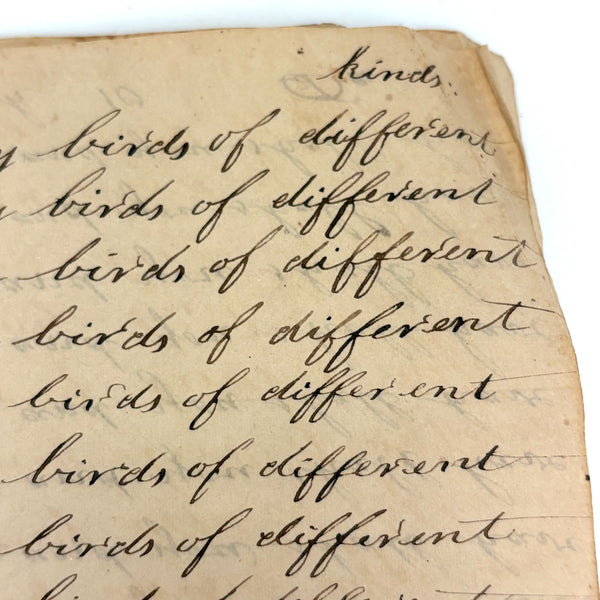 kinds.
y birds of different
y birds of different
birds of different
birds of different
birds of different
birds of different
birds of different
birds of different